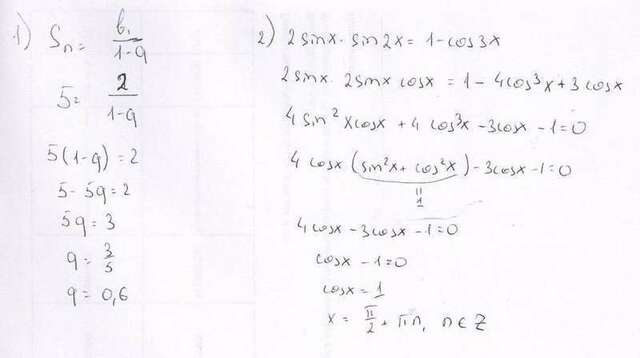 1) Sn = b1/(1-q)
5 = 2/(1-q)
5(1-q) = 2
5 - 5q = 2
5q = 3
q = 3/5
q = 0,6
2) 2 sinx · sin2x = 1 - cos3x
2 sinx · 2sinx cosx = 1 - 4cos³x + 3cosx
4 sin²x cosx + 4 cos³x - 3cosx - 1 = 0
4 cosx (sin²x + cos²x) - 3cosx - 1 = 0
॥
1
4cosx - 3cosx - 1 = 0
cosx - 1 = 0
cosx = 1
x = π/2 + πn, n ∈ Z